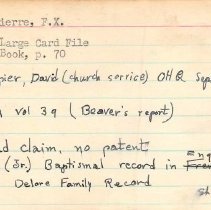 ierre, F.X.
Large Card File
Book, p. 70
pier, David (church service) OHQ
vol 39 (Beaver's report)
d claim, no patent
(Jr.) Baptismal record in
Delore Family Record